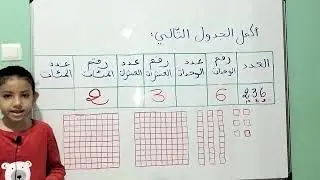 أكمل الجدول التالي:
العدد رقم الوحدات عدد الوحدات رقم العشرات عدد العشرات رقم المئات عدد المئات
236 6 3 2